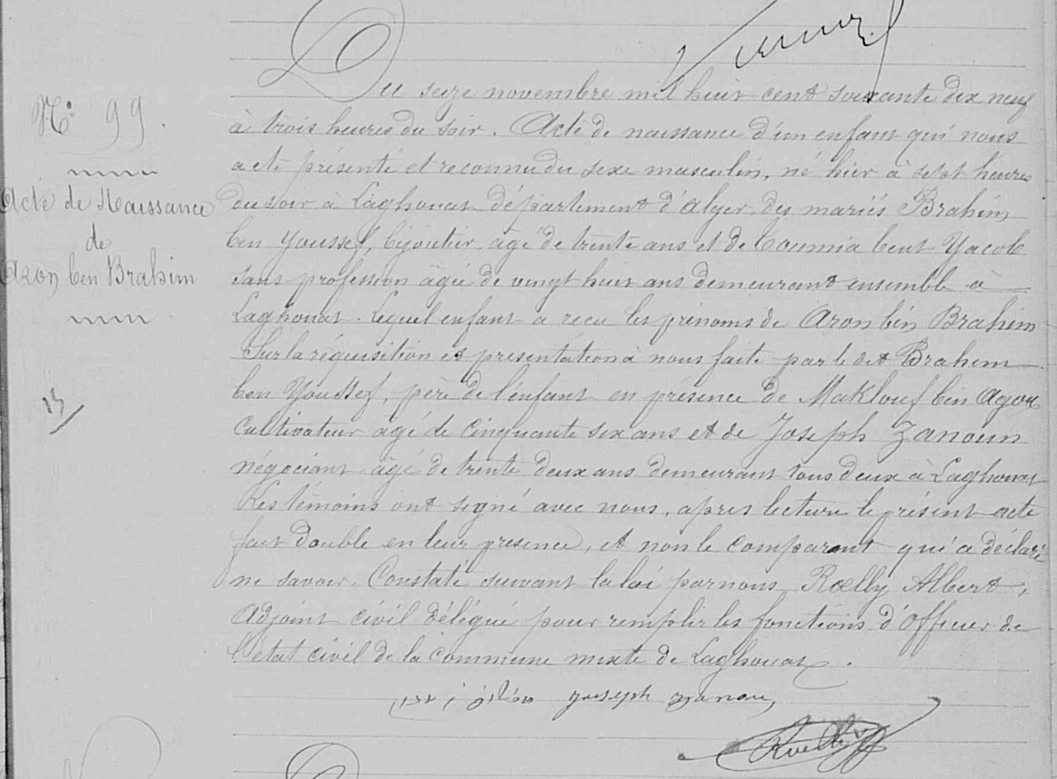 N° 99.
Acte de Naissance
de
Aron ben Brahim
Du seize novembre mil huit cent soixante dix neuf
à trois heures du soir. Acte de naissance d'un enfant qui nous
a été présenté et reconnu du sexe masculin, né hier à sept heures
du soir à Laghouat département d'Alger, des mariés Brahim
ben Youssef, bijoutier, agé de trente ans et de Coumia bent Yacob
sans profession âgée de vingt huit ans demeurant ensemble à
Laghouat. Lequel enfant a reçu les prénoms de Aron ben Brahim
Sur la réquisition et présentation à nous faite par le dit Brahim
ben Youssef, père de l'enfant en présence de Maklouf ben Agou
cultivateur agé de cinquante six ans et de Joseph Zanoun
négociant âgé de trente deux ans demeurant tous deux à Laghouat
Les témoins ont signé avec nous, après lecture le présent acte
fait double en leur présence, et non le comparant qui a déclaré
ne savoir. Constaté suivant la loi par nous, Rœlly Albert,
Adjoint civil délégué pour remplir les fonctions d'Officier de
l'état civil de la commune mixte de Laghouat.
Joseph Zanoun
Roelly